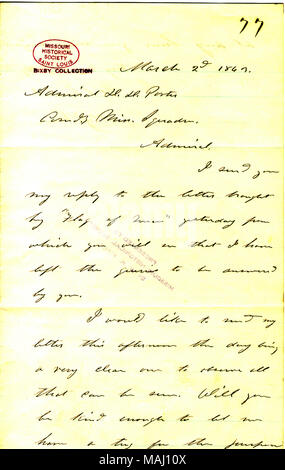 77
MISSOURI
HISTORICAL
SOCIETY
SAINT LOUIS
BIXBY COLLECTION
March 2d 1863.
Admiral D. D. Porter
Comdg Miss. Squadn.
Admiral
I send you
my reply to the letter brought
by "Flag of truce" yesterday from
which you will see that I have
left the general to be answered
by you.
I would like to send my
letter this afternoon the day being
a very clear one to observe all
that can be seen. Will you
be kind enough to let me
have a tug for the purpose
alamy
Image ID: MAJ10X
www.alamy.com